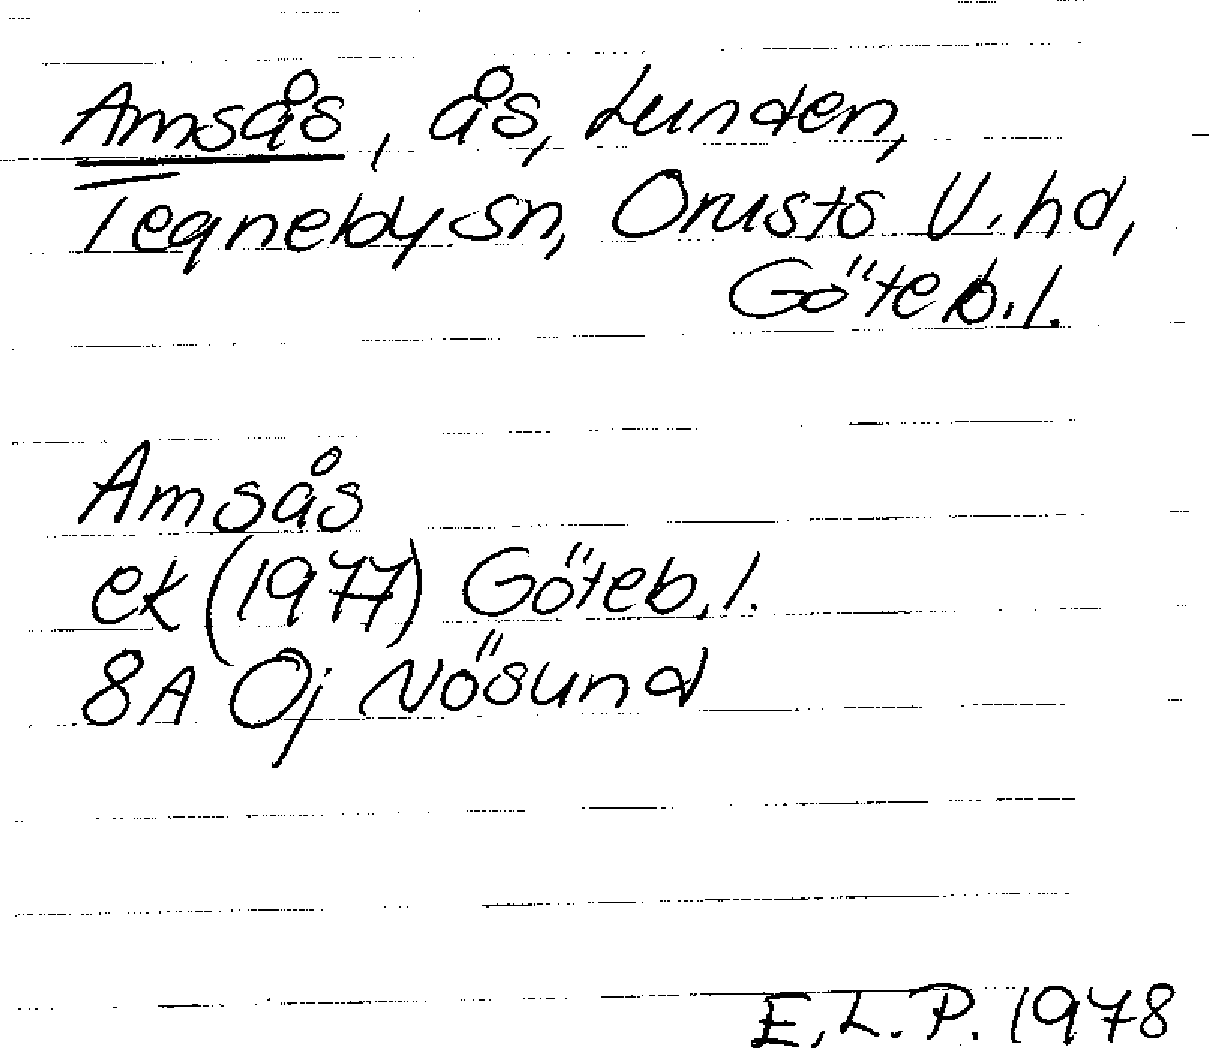 Amsås, ås, Lunden,
Tegneby sn, Orusts V. hd,
Göteb. l.
Amsås
ek (1977) Göteb. l.
8A Oj Nösund
E. L. P. 1978